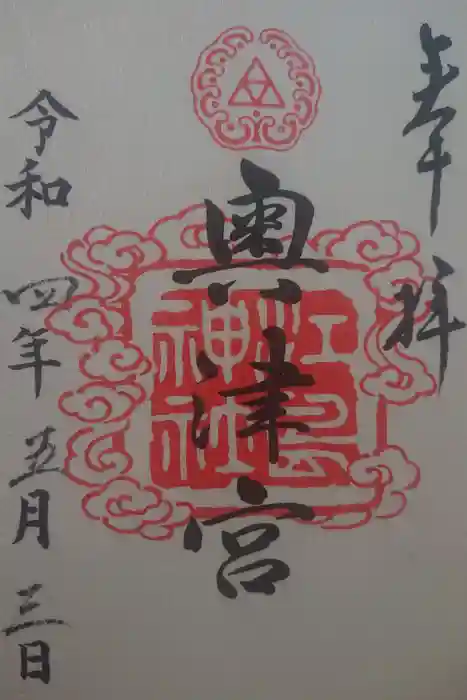 奉拝
奧津宮
江島神社
令和四年五月三日